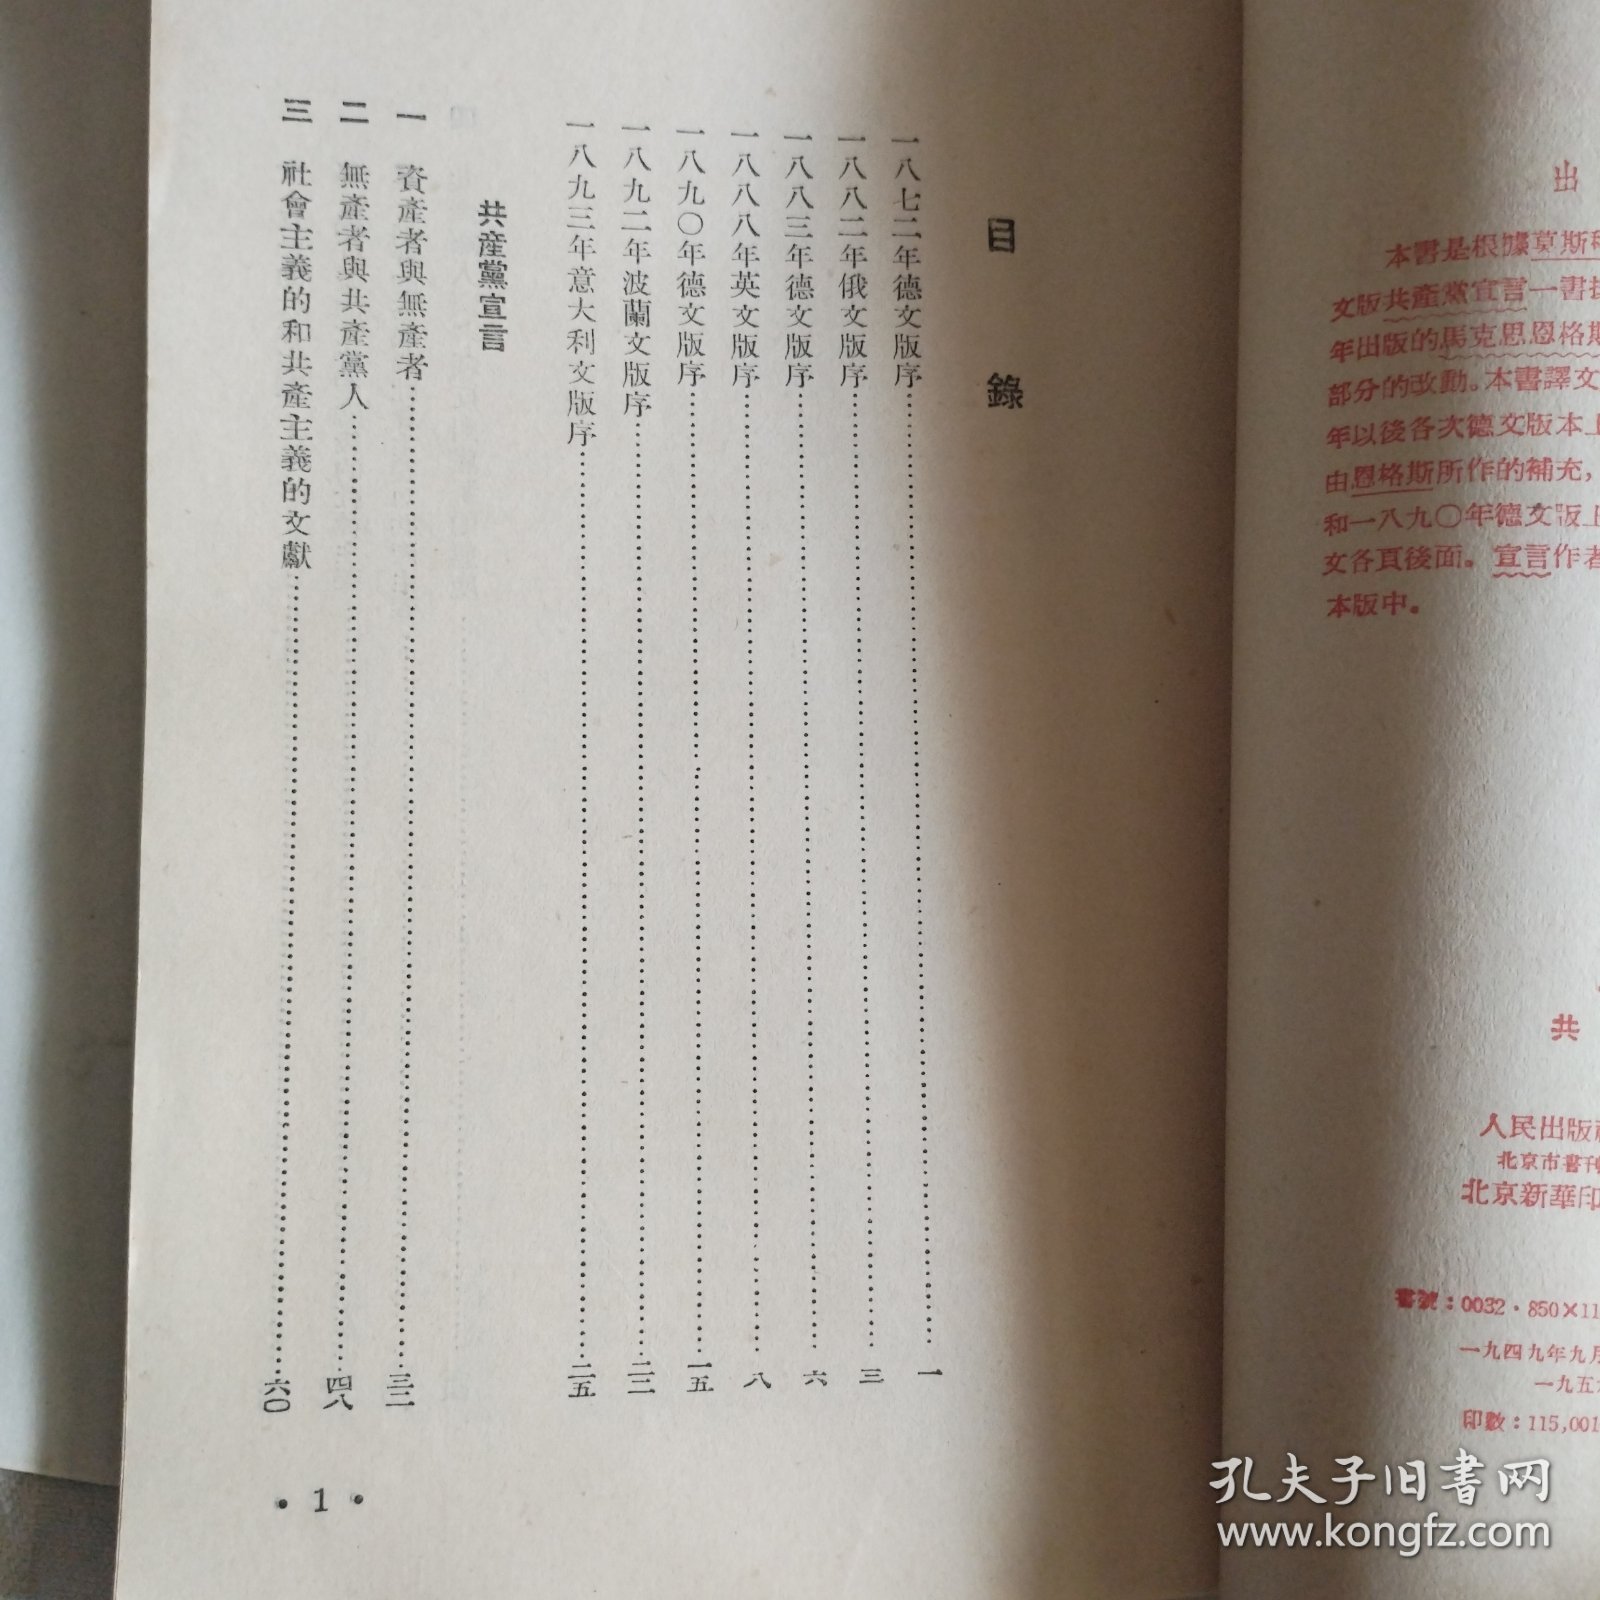 出
本書是根據莫斯
文版共產黨宣言一書
年出版的馬克思恩格斯
部分的改動。本書譯文
年以後各次德文版本上
由恩格斯所作的補充，
和一八九〇年德文版上
文各頁後面。宣言作者
本版中。
共
人民出版社
北京市書刊
北京新華印
書號：0032·850×11
一九四九年九月
一九五
印數：115,001
目錄
一八七二年德文版序……一
一八八二年俄文版序……三
一八八三年德文版序……六
一八八八年英文版序……八
一八九〇年德文版序……一五
一八九二年波蘭文版序……二三
一八九三年意大利文版序……二五
共產黨宣言
一 資產者與無產者……三二
二 無產者與共產黨人……四八
三 社會主義的和共產主義的文獻……六〇
·1·
孔夫子旧書网
www.kongfz.com